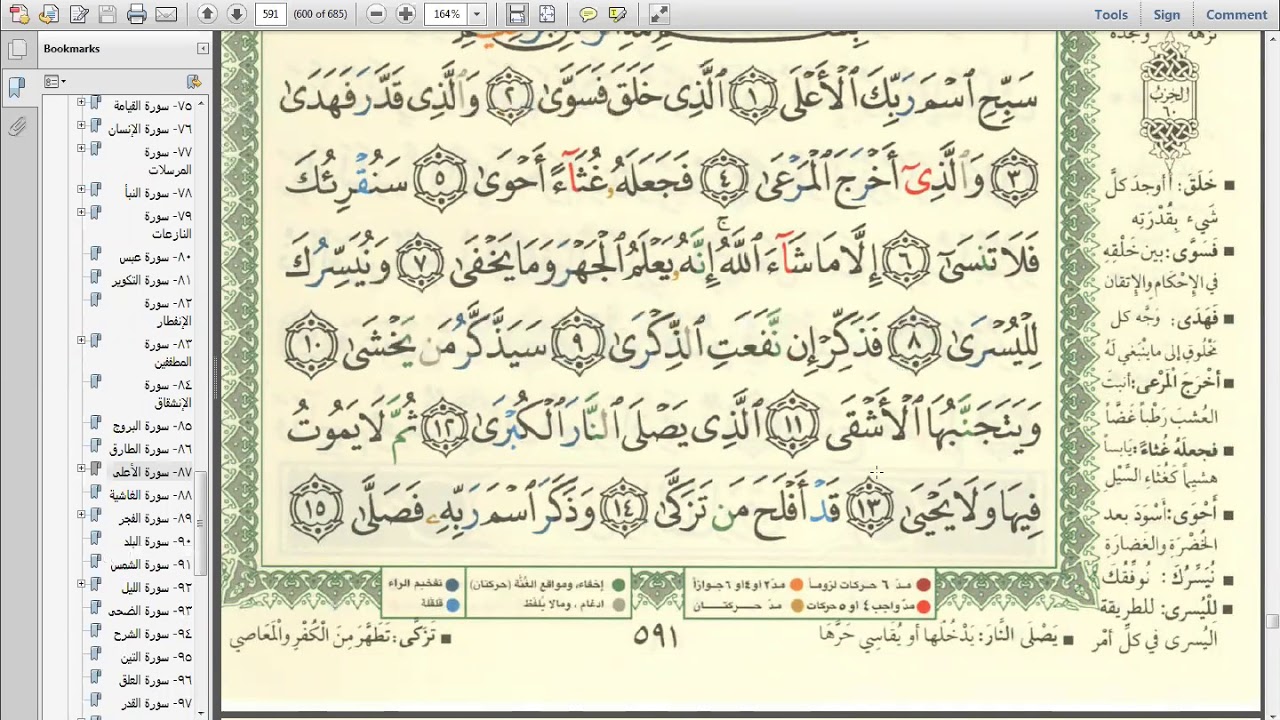 591
(600 of 685)
164%
Tools
Sign
Comment
Bookmarks
٧٥- سورة القيامة
٧٦- سورة الإنسان
٧٧- سورة
المرسلات
٧٨- سورة النبأ
٧٩- سورة
النازعات
٨٠- سورة عبس
٨١- سورة التكوير
٨٢- سورة
الإنفطار
٨٣- سورة
المطففين
٨٤- سورة
الإنشقاق
٨٥- سورة البروج
٨٦- سورة الطارق
٨٧- سورة الأعلى
٨٨- سورة الغاشية
٨٩- سورة الفجر
٩٠- سورة البلد
٩١- سورة الشمس
٩٢- سورة الليل
٩٣- سورة الضحى
٩٤- سورة الشرح
٩٥- سورة التين
٩٦- سورة العلق
٩٧- سورة القدر
سَبِّحِ ٱسْمَ رَبِّكَ ٱلْأَعْلَى ١ ٱلَّذِى خَلَقَ فَسَوَّىٰ ٢ وَٱلَّذِى قَدَّرَ فَهَدَىٰ
٣ وَٱلَّذِىٓ أَخْرَجَ ٱلْمَرْعَىٰ ٤ فَجَعَلَهُۥ غُثَآءً أَحْوَىٰ ٥ سَنُقْرِئُكَ
فَلَا تَنسَىٰٓ ٦ إِلَّا مَا شَآءَ ٱللَّهُ ۚ إِنَّهُۥ يَعْلَمُ ٱلْجَهْرَ وَمَا يَخْفَىٰ ٧ وَنُيَسِّرُكَ
لِلْيُسْرَىٰ ٨ فَذَكِّرْ إِن نَّفَعَتِ ٱلذِّكْرَىٰ ٩ سَيَذَّكَّرُ مَن يَخْشَىٰ ١٠
وَيَتَجَنَّبُهَا ٱلْأَشْقَى ١١ ٱلَّذِى يَصْلَى ٱلنَّارَ ٱلْكُبْرَىٰ ١٢ ثُمَّ لَا يَمُوتُ
فِيهَا وَلَا يَحْيَىٰ ١٣ قَدْ أَفْلَحَ مَن تَزَكَّىٰ ١٤ وَذَكَرَ ٱسْمَ رَبِّهِۦ فَصَلَّىٰ ١٥
الحزب
٦٠
■ خَلَقَ: أوجدَ كلَّ
شَيء بِقُدْرَتِه
■ فَسَوَّى: بين خَلْقِهِ
في الإحْكام والإتقان
■ فَهَدَى: وَجَّه كل
مَخْلُوقٍ إلى ما يَنْبَغي لَهُ
■ أخْرَجَ المَرْعَى: أنبتَ
العُشبَ رَطْباً غَضّاً
■ فجعلَهُ غُثاءً: يَابساً
هشيماً كغُثَاء السَّيْل
■ أَحْوَى: أسْوَدَ بعد
الخُضْرَة والغضارة
■ نُيَسِّرُكَ: نُوفِّقُكَ
■ لِلْيُسرَى: للطريقة
اليُسرى في كلِّ أمْر
مدّ ٦ حركات لزوماً
مدّ٢ او٤او ٦جوازاً
مدّ واجب٤ او ٥حركات
مدّ حركتان
إخفاء، ومواقع الغُنَّة (حركتان)
ادغام ، ومالا يُلفَظ
تفخيم الراء
قلقلة
■ يَصْلَى النَّارَ: يَدْخُلُها أو يُقَاسِي حَرَّهَا
٥٩١
■ تَزَكَّى: تَطَهَّرَ مِنَ الكُفْرِ والمَعَاصِي